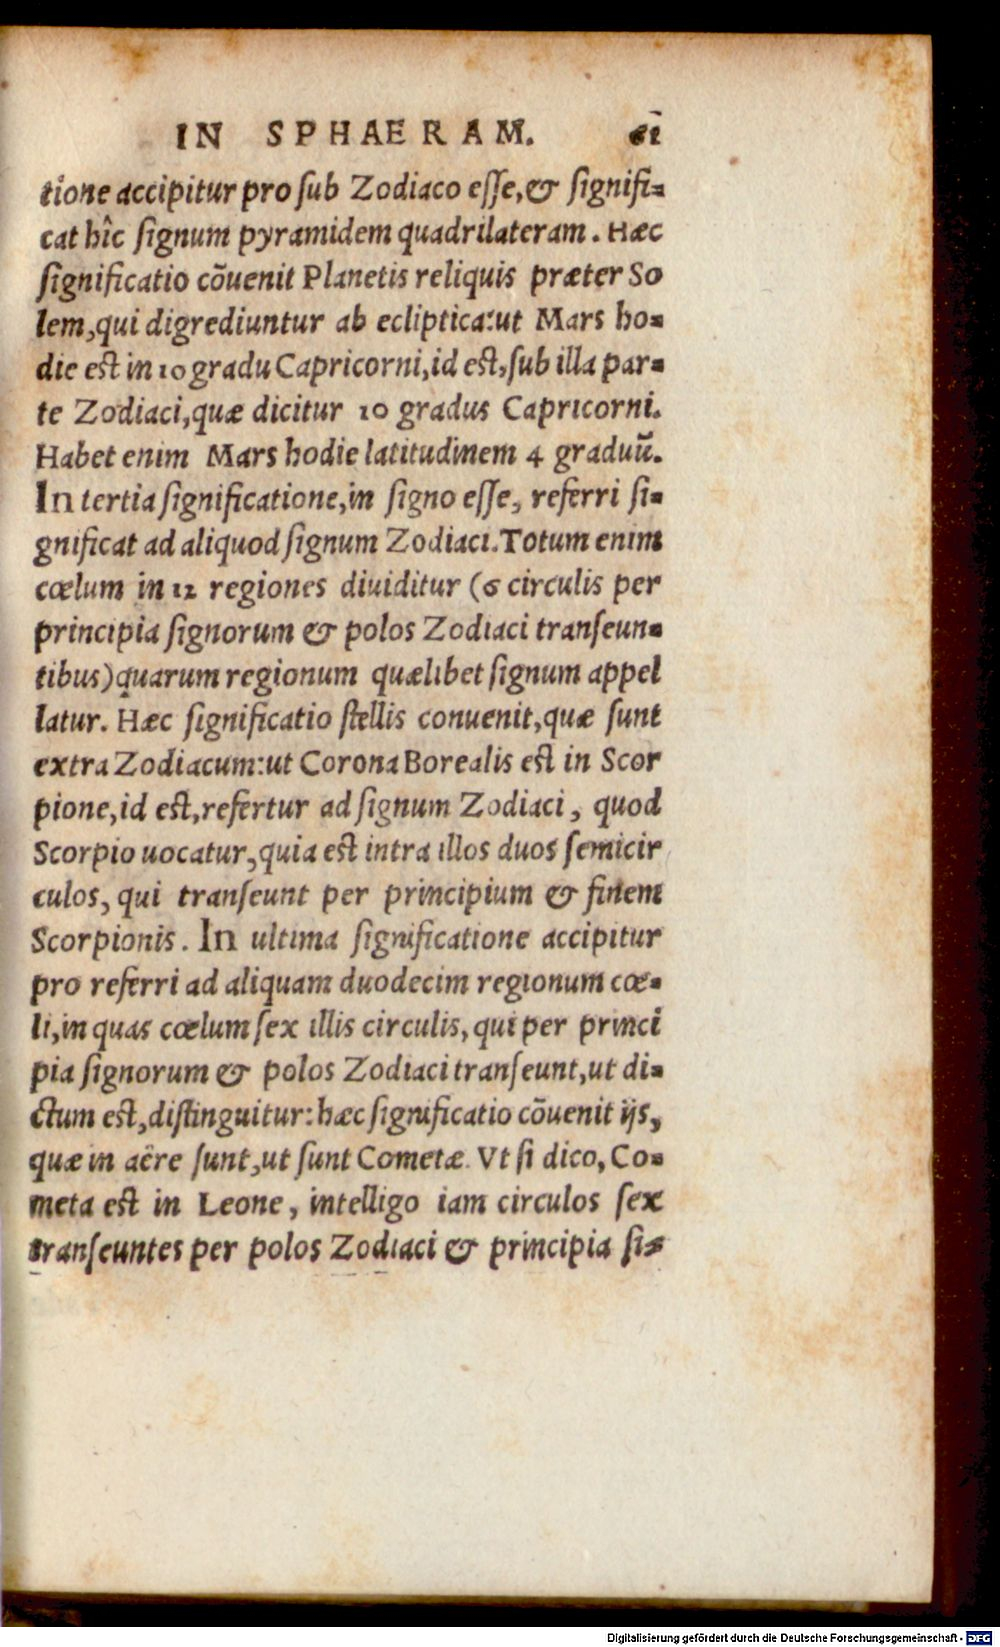 IN SPHAERAM. 61
tione accipitur pro ſub Zodiaco eſſe, & ſignifi-
cat hîc ſignum pyramidem quadrilateram. Hæc
ſignificatio cõuenit Planetis reliquis præter So
lem, qui digrediuntur ab ecliptica: ut Mars ho-
die est in 10 gradu Capricorni, id est, ſub illa par-
te Zodiaci, quæ dicitur 10 gradus Capricorni.
Habet enim Mars hodie latitudinem 4 graduũ.
In tertia ſignificatione, in ſigno eſſe, referri ſi-
gnificat ad aliquod ſignum Zodiaci. Totum enim
cœlum in 12 regiones diuiditur (6 circulis per
principia ſignorum & polos Zodiaci tranſeun-
tibus) quarum regionum quælibet ſignum appel
latur. Hæc ſignificatio ſtellis conuenit, quæ ſunt
extra Zodiacum: ut Corona Borealis est in Scor
pione, id est, refertur ad ſignum Zodiaci, quod
Scorpio uocatur, quia est intra illos duos ſemicir
culos, qui tranſeunt per principium & finem
Scorpionis. In ultima ſignificatione accipitur
pro referri ad aliquam duodecim regionum cœ-
li, in quas cœlum ſex illis circulis, qui per princi
pia ſignorum & polos Zodiaci tranſeunt, ut di-
ctum est, diſtinguitur: hæc ſignificatio cõuenit ijs,
quæ in aëre ſunt, ut ſunt Cometæ. Vt ſi dico, Co-
meta est in Leone, intelligo iam circulos ſex
tranſeuntes per polos Zodiaci & principia ſi-
Digitalisierung gefördert durch die Deutsche Forschungsgemeinschaft - DFG